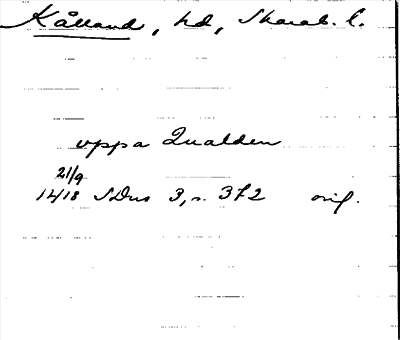 Kålland, hd, Skarab. l.
uppa Qualden
21/9
1418 SDns 3, s. 372 orig.